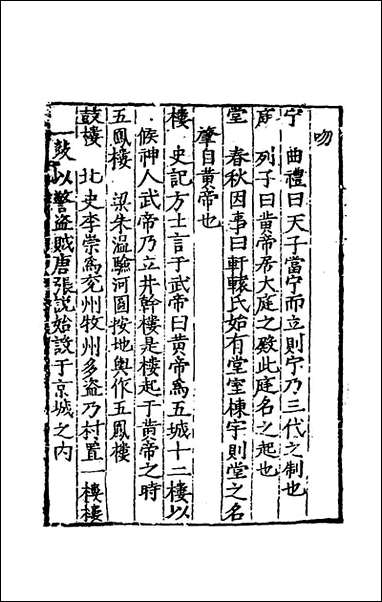 吻
宁　曲禮曰天子當宁而立則宁乃三代之制也
庭　列子曰黄帝居大庭之殿此庭名之起也
堂　春秋因事曰軒轅氏始有堂室棟宇則堂之名
肇自黄帝也
樓　史記方士言于武帝曰黄帝為五城十二樓以
候神人武帝乃立井幹樓是樓起于黄帝之時
五鳳樓　梁朱温驗河圖按地輿作五鳳樓
鼓樓　北史李崇為兖州牧州多盗乃村置一樓樓
一鼔以警盗賊唐張說始設于京城之内